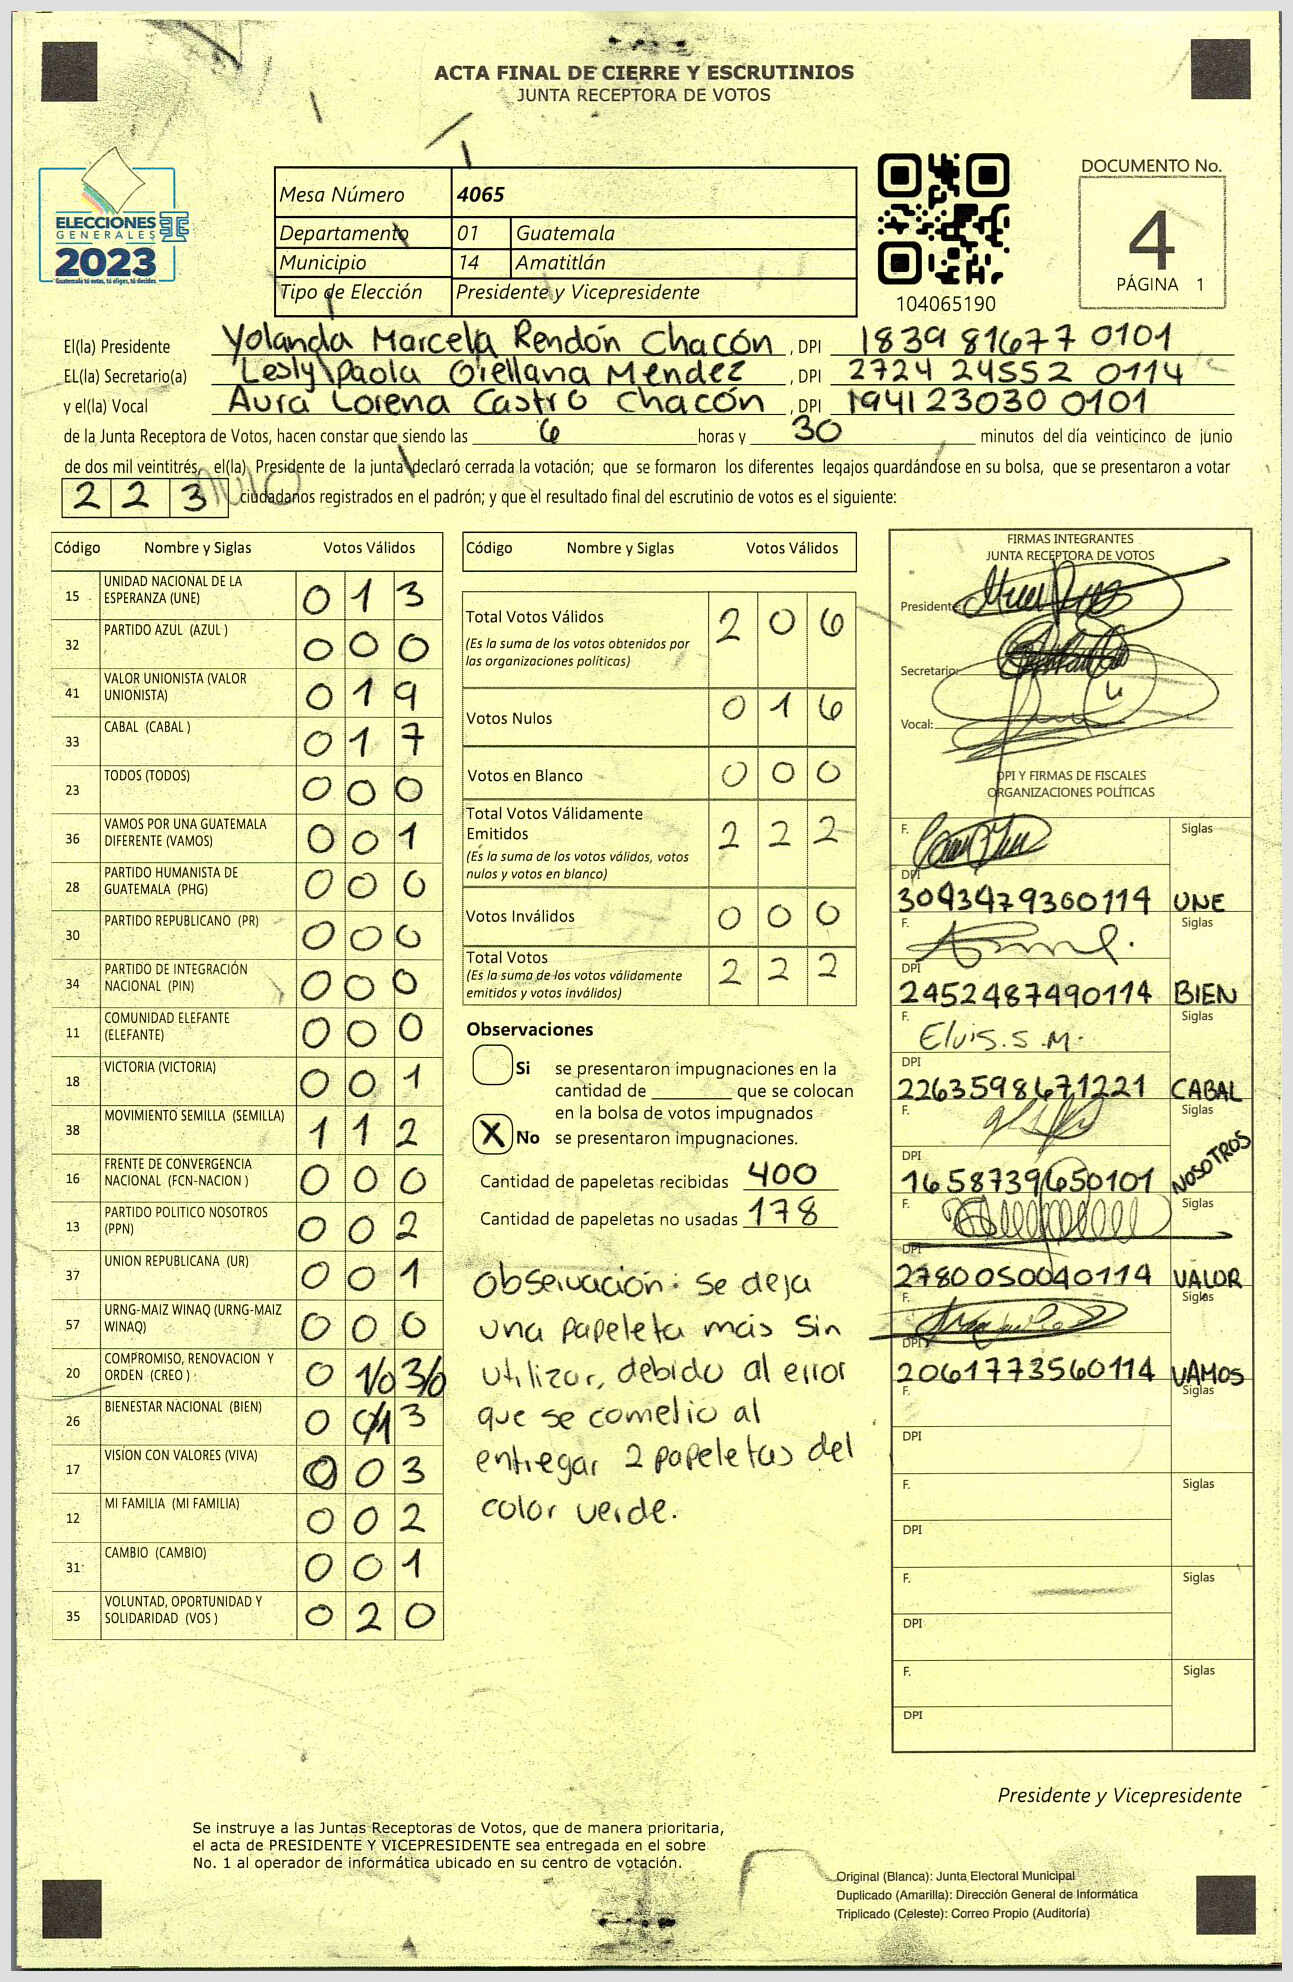 ACTA FINAL DE CIERRE Y ESCRUTINIOS
JUNTA RECEPTORA DE VOTOS
ELECCIONES
GENERALES
2023
Guatemala tú votas, tú eliges, tú decides
Mesa Número 4065
Departamento 01 Guatemala
Municipio 14 Amatitlán
Tipo de Elección Presidente y Vicepresidente
104065190
DOCUMENTO No.
4
PÁGINA 1
El(la) Presidente Yolanda Marcela Rendón Chacón, DPI 1839 81677 0101
EL(la) Secretario(a) Lesly Paola Orellana Méndez, DPI 2724 24552 0114
y el(la) Vocal Aura Lorena Castro Chacón, DPI 194123030 0101
de la Junta Receptora de Votos, hacen constar que siendo las 6 horas y 30 minutos del día veinticinco de junio
de dos mil veintitrés, el(la) Presidente de la junta declaró cerrada la votación; que se formaron los diferentes legajos quardándose en su bolsa, que se presentaron a votar
2 2 3 ciudadanos registrados en el padrón; y que el resultado final del escrutinio de votos es el siguiente:
Código Nombre y Siglas Votos Válidos
15 UNIDAD NACIONAL DE LA ESPERANZA (UNE) 0 1 3
32 PARTIDO AZUL (AZUL ) 0 0 0
41 VALOR UNIONISTA (VALOR UNIONISTA) 0 1 9
33 CABAL (CABAL ) 0 1 7
23 TODOS (TODOS) 0 0 0
36 VAMOS POR UNA GUATEMALA DIFERENTE (VAMOS) 0 0 1
28 PARTIDO HUMANISTA DE GUATEMALA (PHG) 0 0 0
30 PARTIDO REPUBLICANO (PR) 0 0 0
34 PARTIDO DE INTEGRACIÓN NACIONAL (PIN) 0 0 0
11 COMUNIDAD ELEFANTE (ELEFANTE) 0 0 0
18 VICTORIA (VICTORIA) 0 0 1
38 MOVIMIENTO SEMILLA (SEMILLA) 1 1 2
16 FRENTE DE CONVERGENCIA NACIONAL (FCN-NACION ) 0 0 0
13 PARTIDO POLITICO NOSOTROS (PPN) 0 0 2
37 UNION REPUBLICANA (UR) 0 0 1
57 URNG-MAIZ WINAQ (URNG-MAIZ WINAQ) 0 0 0
20 COMPROMISO, RENOVACION Y ORDEN (CREO ) 0 1/0 3/0
26 BIENESTAR NACIONAL (BIEN) 0 0/1 3
17 VISÍON CON VALORES (VIVA) 0 0 3
12 MI FAMILIA (MI FAMILIA) 0 0 2
31 CAMBIO (CAMBIO) 0 0 1
35 VOLUNTAD, OPORTUNIDAD Y SOLIDARIDAD (VOS ) 0 2 0
Código Nombre y Siglas Votos Válidos
Total Votos Válidos 2 0 6
(Es la suma de los votos obtenidos por
las organizaciones políticas)
Votos Nulos 0 1 6
Votos en Blanco 0 0 0
Total Votos Válidamente
Emitidos 2 2 2
(Es la suma de los votos válidos, votos
nulos y votos en blanco)
Votos Inválidos 0 0 0
Total Votos 2 2 2
(Es la suma de los votos válidamente
emitidos y votos inválidos)
Observaciones
Si se presentaron impugnaciones en la
cantidad de ________ que se colocan
en la bolsa de votos impugnados
X No se presentaron impugnaciones.
Cantidad de papeletas recibidas 400
Cantidad de papeletas no usadas 178
Observación: se deja
una papeleta más sin
utilizar, debido al error
que se cometio al
entregar 2 papeletas del
color verde.
FIRMAS INTEGRANTES
JUNTA RECEPTORA DE VOTOS
Presidente:
Secretario:
Vocal:
DPI Y FIRMAS DE FISCALES
ORGANIZACIONES POLÍTICAS
F. Siglas
DPI
3043479360114 UNE
F. Siglas
DPI
2452487490114 BIEN
F. Elvis.S.M. Siglas
DPI
2263598671221 CABAL
F. Siglas
DPI
1658739650101 NOSOTROS
F. Siglas
DPI
2780050040114 VALOR
F. Siglas
DPI
2061773560114 VAMOS
F. Siglas
DPI
F. Siglas
DPI
F. Siglas
DPI
F. Siglas
DPI
Presidente y Vicepresidente
Se instruye a las Juntas Receptoras de Votos, que de manera prioritaria,
el acta de PRESIDENTE Y VICEPRESIDENTE sea entregada en el sobre
No. 1 al operador de informática ubicado en su centro de votación.
Original (Blanca): Junta Electoral Municipal
Duplicado (Amarilla): Dirección General de Informática
Triplicado (Celeste): Correo Propio (Auditoría)